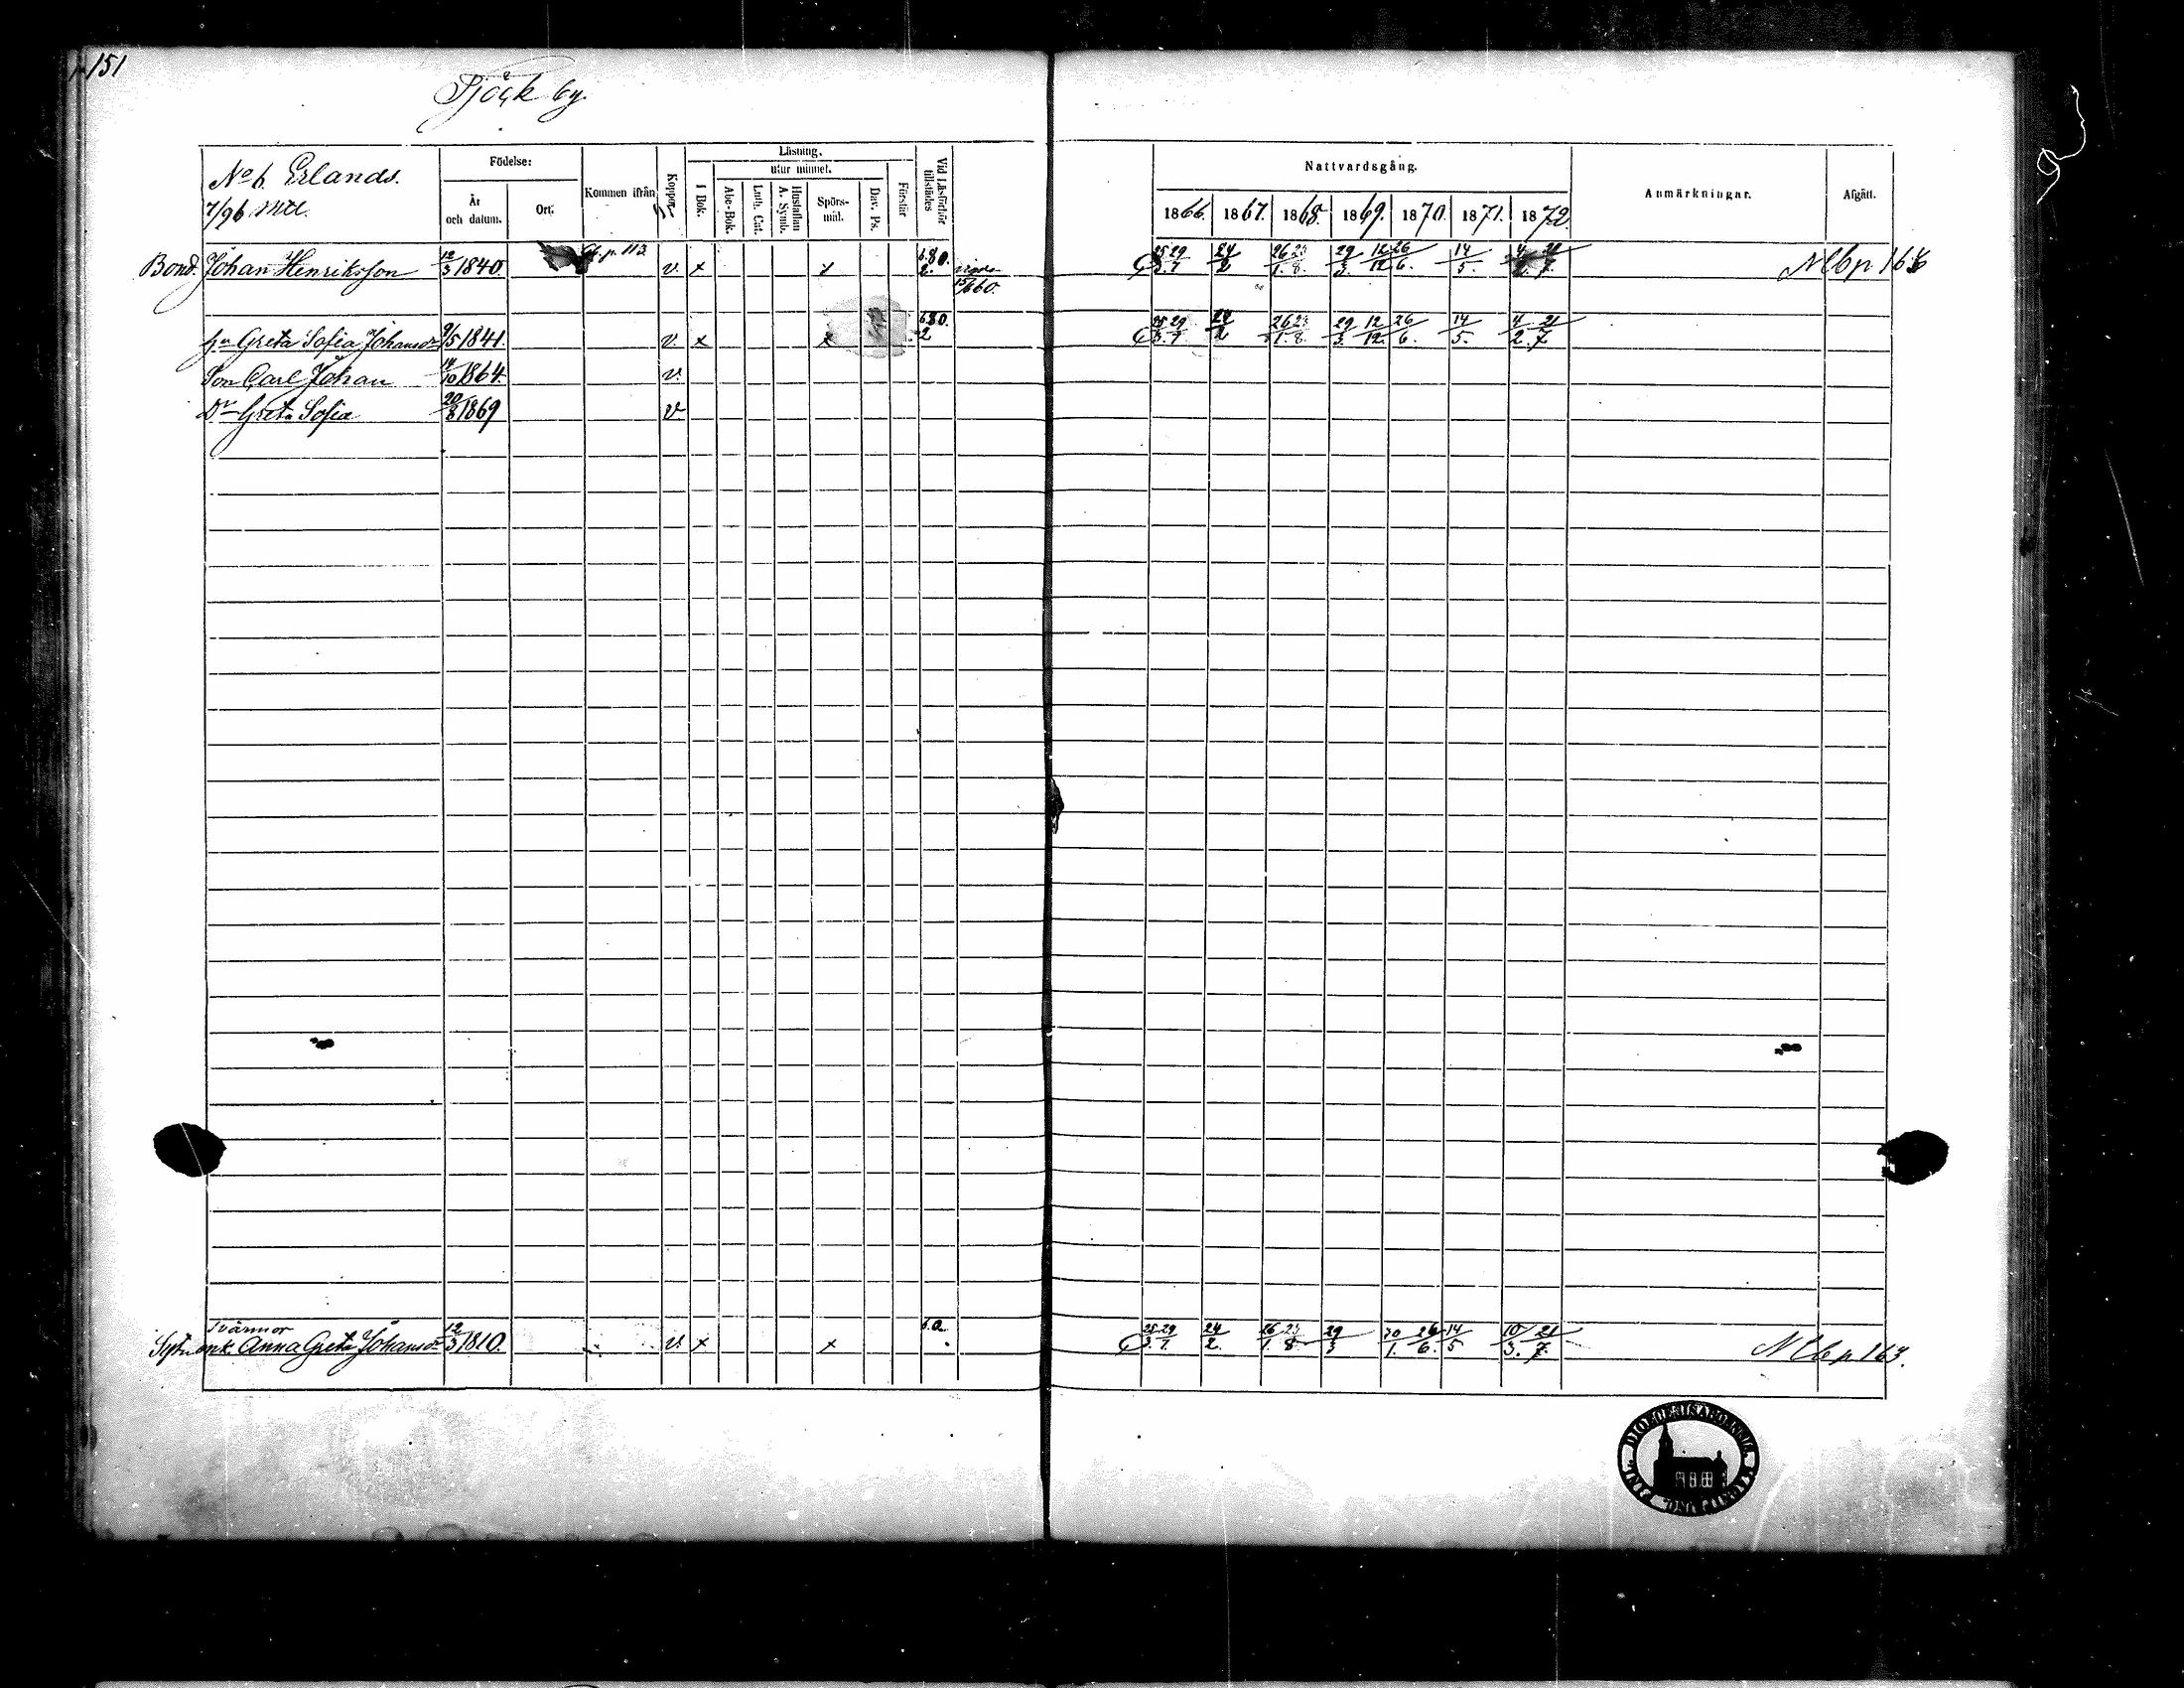 151
Tjöck by.
No 6. Erlands.
7/96 Mtl.
Födelse:
År och datum.
Ort:
Kommen ifrån
Koppor.
Läsning.
utur minnet.
I Bok.
Abc-Bok.
Luth. Cat.
Hustaflan A. Symb.
Spörsmål.
Dav. Ps.
Förstår
Vid Läsförhör tillstädes
Nattvardsgång.
1866. 1867. 1868. 1869. 1870. 1871. 1872.
Anmärkningar.
Afgått.
Bond. Johan Henriksson 12/3 1840. p. 113 v. x x 6.8.0. 2. vigda 60. 25/3 29/7 24/2 26/1 23/8 29/3 12/12 26/6. 14/5. 4/2 21/7. N Cb p 166
Hu Greta Sofia Johansdr 9/5 1841. v. x x 6.8.0. 2 25/3 29/7 24/2 26/1 23/8 29/3 12/12 26/6. 14/5. 4/2 21/7
Son Carl Johan 14/10 1864. v.
Dr Greta Sofia 20/8 1869 v
Svärmor
Sytn. enk. Anna Greta Johansdr 12/3 1810. v. x x 6.0. 25/3 29/7 24/2. 26/1 23/8 29/3 30/1. 26/6. 14/5 10/3. 21/7. N Cb p 163.